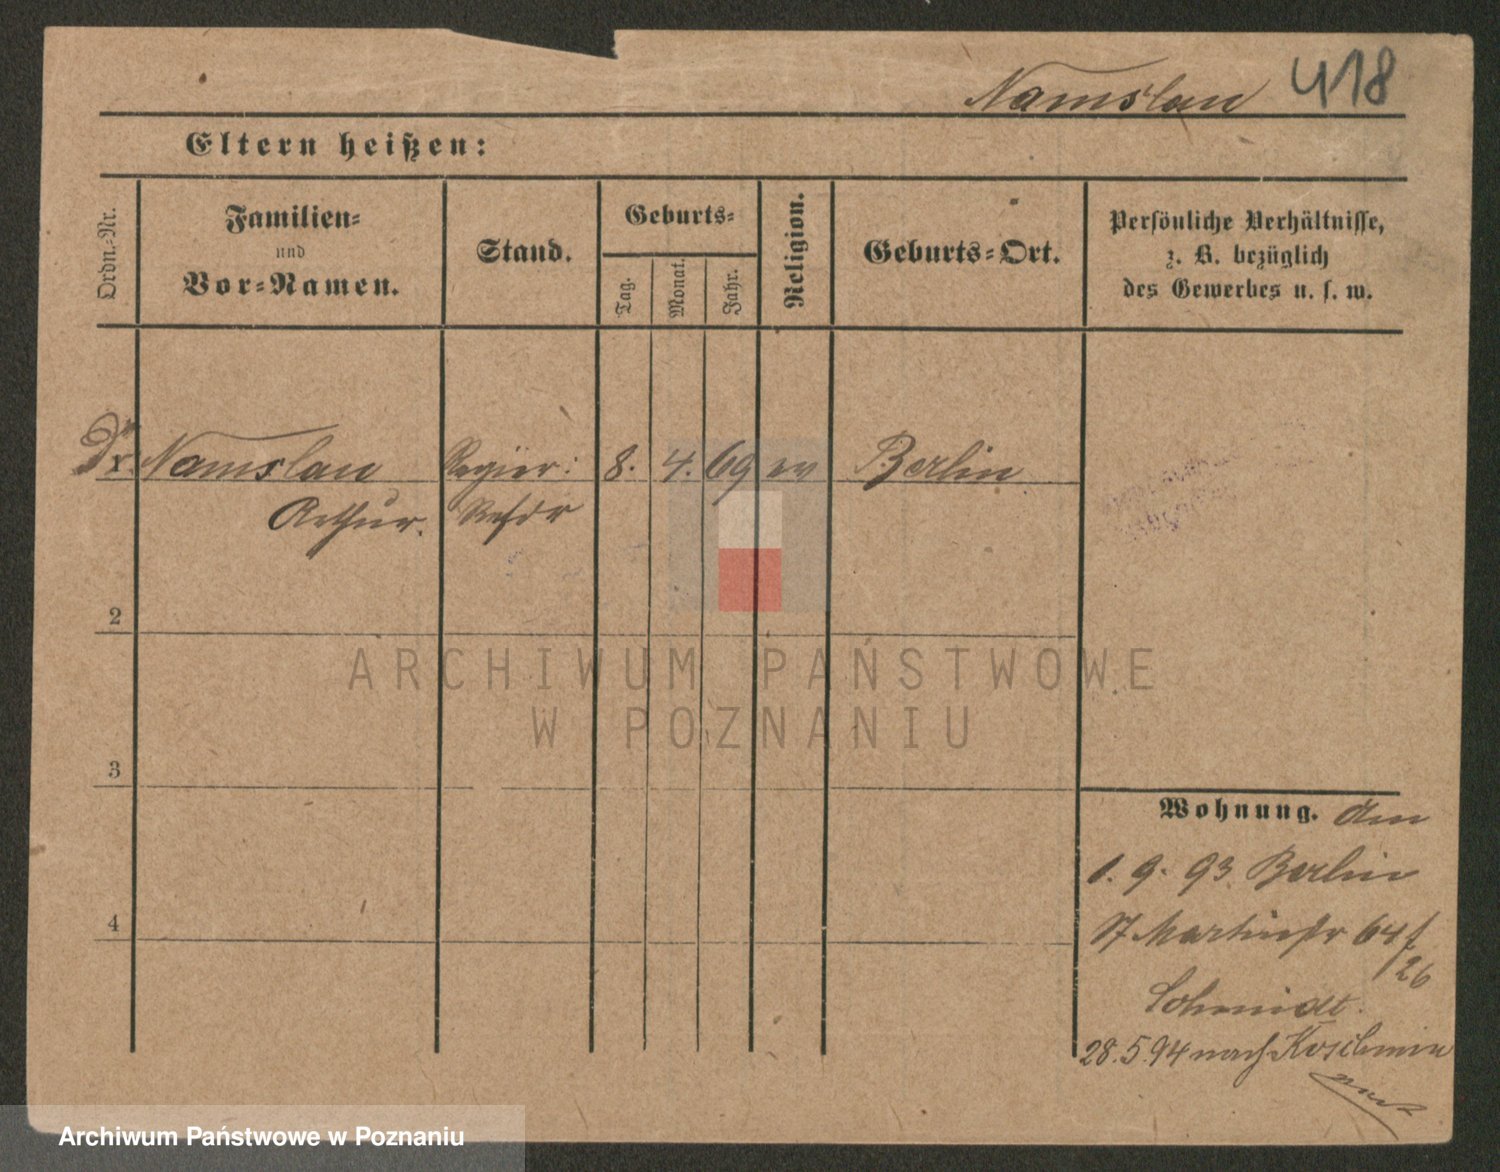 Namslau 418
Eltern heißen:
Ordn.-Nr.
Familien-
und
Vor-Namen.
Stand.
Geburts-
Tag.
Monat.
Jahr.
Religion.
Geburts-Ort.
Persönliche Verhältnisse,
z. B. bezüglich
des Gewerbes u. s. w.
Dr. Namslau Regier: 8. 4. 69 ev Berlin
Arthur. Refdr
2
3
4
Wohnung. den
1. 9. 93 Berlin
St Martinstr 64
26
Schmidt.
28.5.94 nach Koschmin
ARCHIWUM PAŃSTWOWE
W POZNANIU
Archiwum Państwowe w Poznaniu